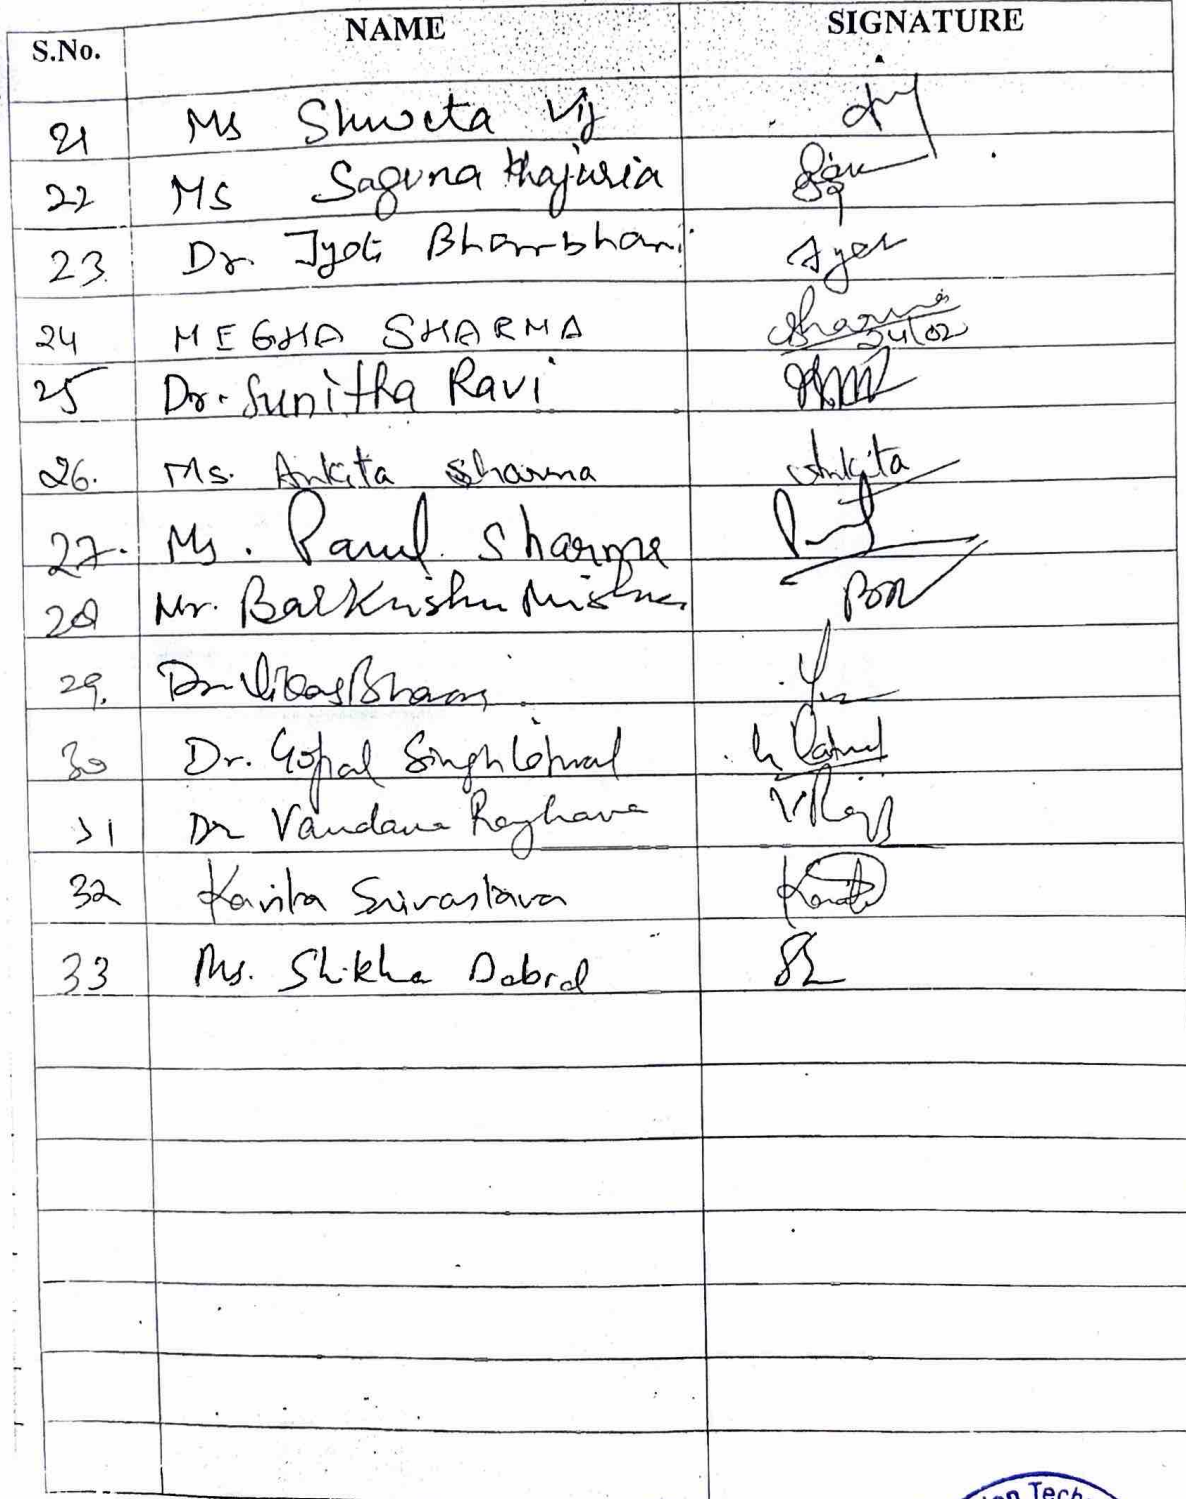 S.No. NAME SIGNATURE
21 Ms Shweta Vij
22 MS Saguna Khajuria
23. Dr. Jyoti Bhambhani
24 MEGHA SHARMA Sharma 24/02
25 Dr. Sunitha Ravi
26. Ms. Ankita Sharma Ankita
27. Ms. Parul Sharma
28 Mr. BalKrishn Mishra
29. Dr. Vikas Bharara
30 Dr. Gopal Singh Latwal
31 Dr Vandana Raghava
32 Kavita Srivastava
33 Ms. Shikha Dabral
Tech